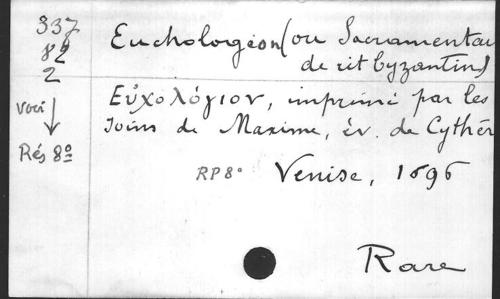 337
82
2
voir
Rés 8º
Euchologion (ou Sacramentai
de rit byzantin)
Εὐχολόγιον, imprimé par les
soins de Maxime, év. de Cythèr
RP 8º Venise, 1696
Rare